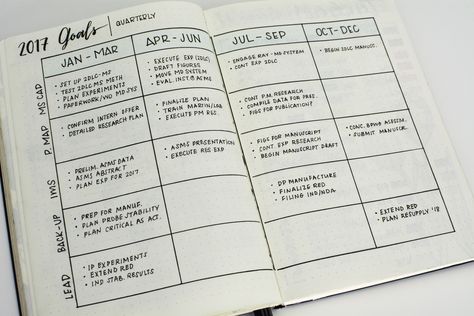 2017 Goals | QUARTERLY
JAN - MAR
APR - JUN
JUL - SEP
OCT - DEC
MS CAD
• SET UP 2DLC-MS
• TEST 2DLC MS METH
• PLAN EXPERIMENTS
• PAPERWORK/ MD SYS
• EXECUTE EXP (2DLC)
• DRAFT FIGURES
• MOVE MD SYSTEM
• EVAL. INST.@ASMS
• ENGAGE RAY - MD SYSTEM
• CONT EXP 2DLC
• BEGIN 2DLC MANUSC.
P. MAP
• CONFIRM INTERN OFFER
• DETAILED RESEARCH PLAN
• FINALIZE PLAN
• TRAIN MARTIN/LAB
• EXECUTE PM RES.
• CONT P.M. RESEARCH
• COMPILE DATA FOR PRES.
• FIGS FOR PUBLICATION?
IMS
• PRELIM. ASMS DATA
• ASMS ABSTRACT
• PLAN EXP FOR 2017.
• ASMS PRESENTATION
• EXECUTE RES EXP
• FIGS FOR MANUSCRIPT
• CONT. EXP RESEARCH
• BEGIN MANUSCRIPT DRAFT
• CONC. ASSESSM.
• SUBMIT MANUSCR.
BACK-UP
• PREP FOR MANUF.
• PLAN PROBE STABILITY
• PLAN CRITICAL AS ACT.
• DP MANUFACTURE
• FINALIZE RED
• FILING IND/NDA
LEAD
• IP EXPERIMENTS
• EXTEND RED
• IND STAB. RESULTS
• EXTEND RED
• PLAN RESUPPLY '18